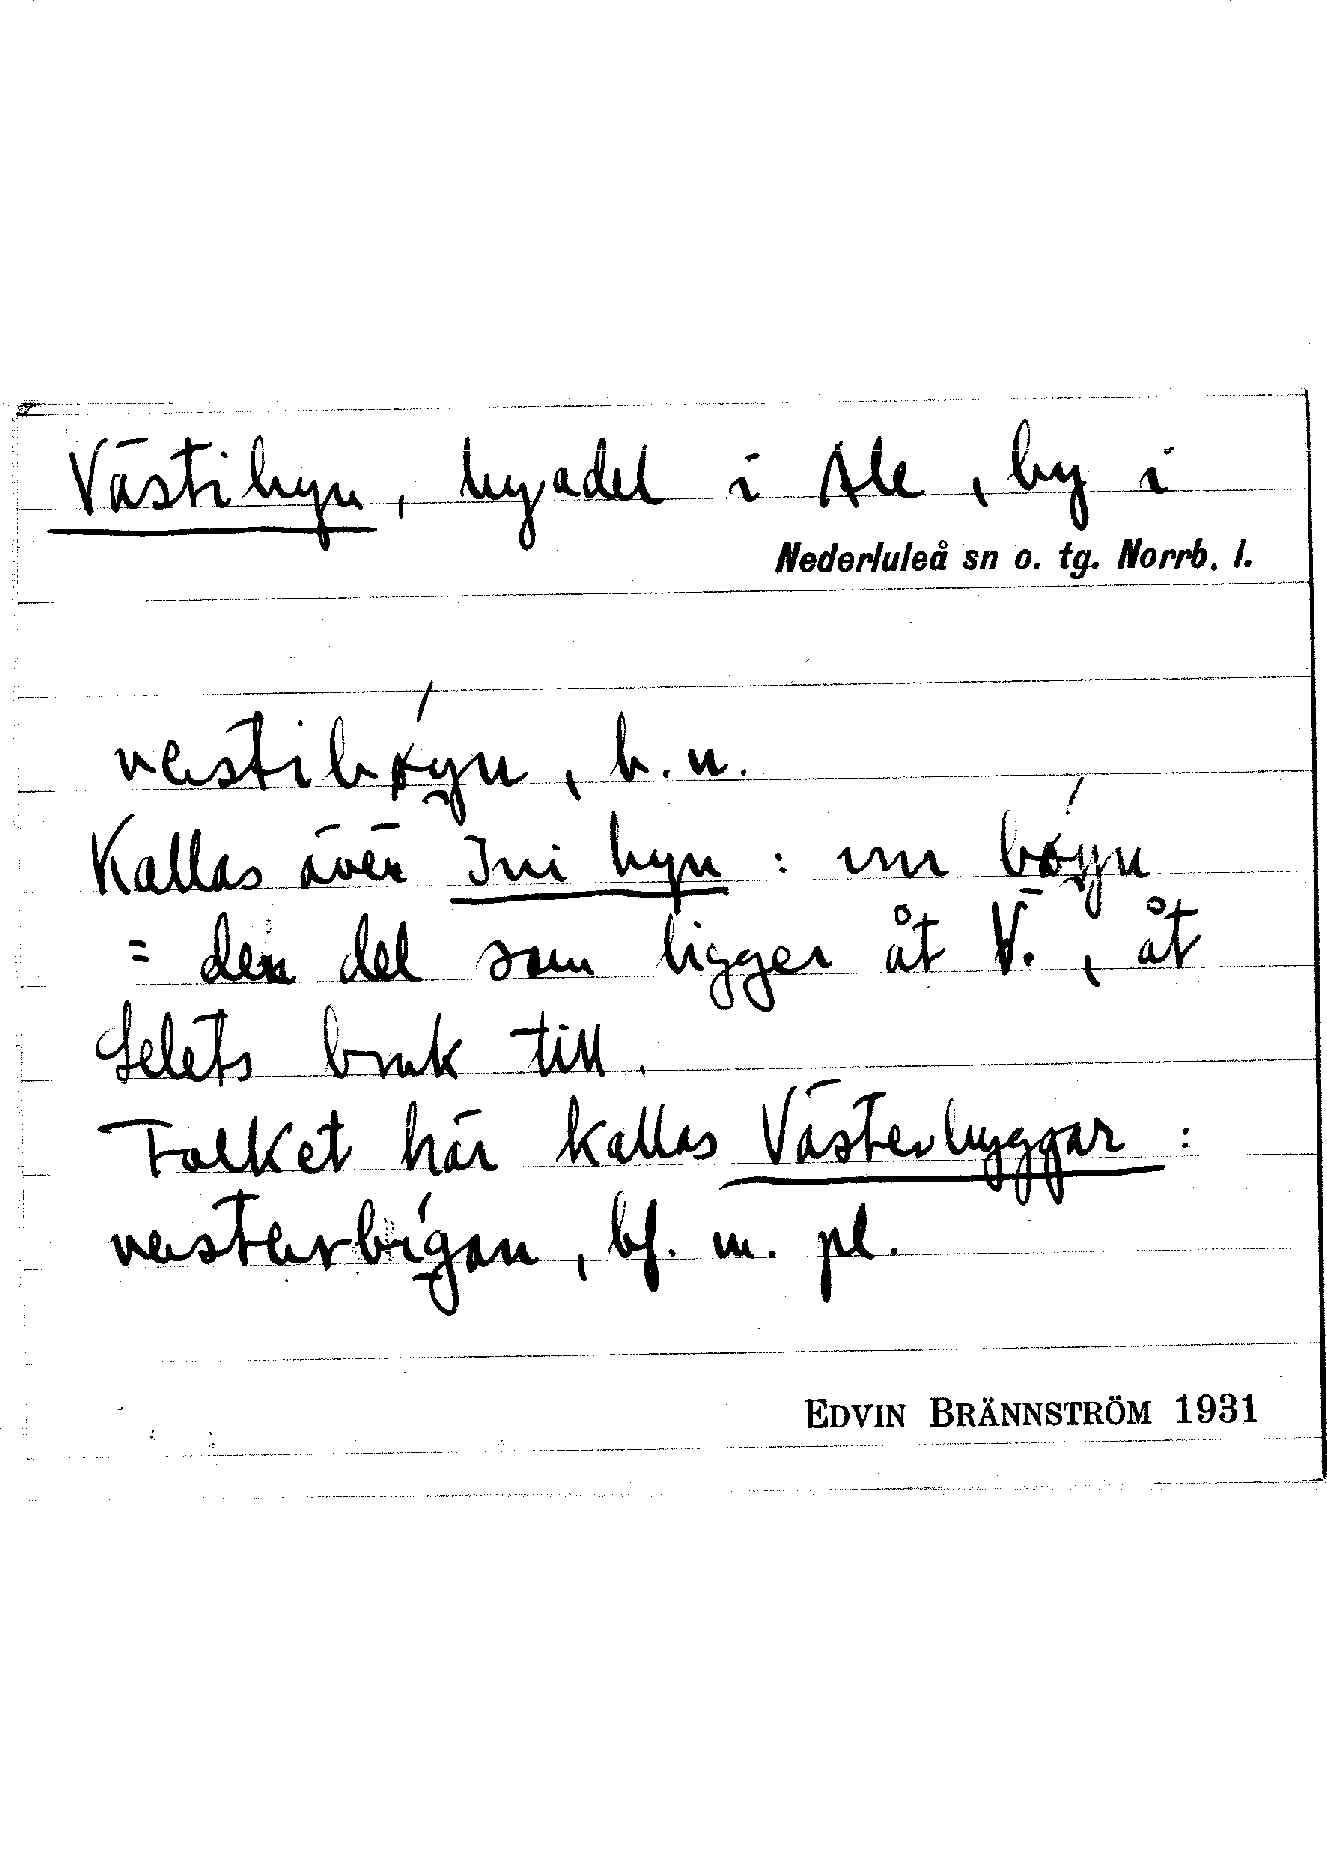 Västibyn, byadel i Ale, by i
Nederluleå sn o. tg. Norrb. l.
vestibǿyn, b.n.
Kallas även Ini byn : inı bǿyn
= den del som ligger åt V., åt
Selets bruk till.
Folket här kallas Västerbyggar :
vesterbígan, bf. m. pl.
EDVIN BRÄNNSTRÖM 1931